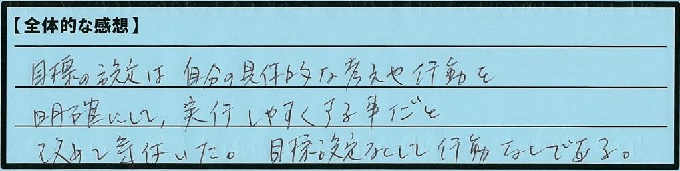 【全体的な感想】
目標の設定は自分の具体的な考えや行動を
明確にして、実行しやすくする事だと
改めて気付いた。目標設定なくして行動なしである。